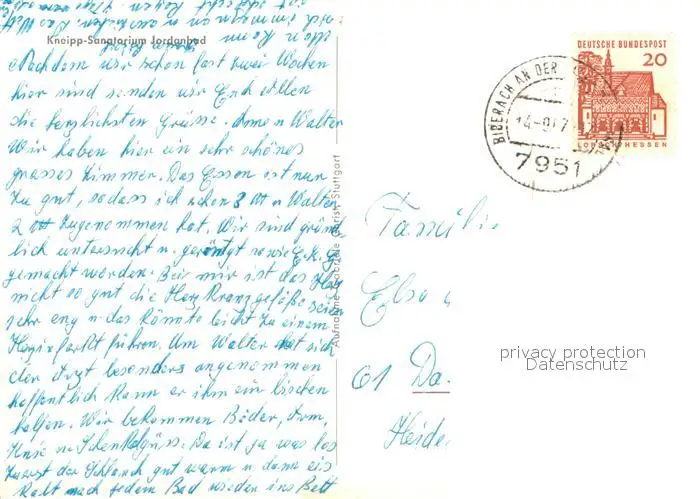 Kneipp-Sanatorium Jordanbad
Nachdem wir schon fast zwei Wochen
hier sind senden wir Euch allen
die herzlichsten Grüsse. Anne u Walter
Wir haben hier ein sehr schönes
grosses Zimmer. Das Essen ist nur
zu gut, sodass ich schon 3 u Walter
2 zugenommen hat. Wir sind gründ
lich untersucht u. geröntgt sowie E.k.G
gemacht worden. Bei mir ist das Herz
nicht so gut die Herzkranzgefäße seien
sehr eng u das könnte leicht zu einem
Herzinfarkt führen. Um Walter hat sich
der Arzt besonders angenommen
hoffentlich kann er ihm ein bischen
helfen. Wir bekommen Bäder, Arm,
Knie u Schenkelgüss. Da ist ja was los
zuerst der Schlauch gut warm u dann eis
kalt nach jedem Bad wieder ins Bett
Stuttgart
DEUTSCHE BUNDESPOST
20
LORSCH/HESSEN
BIBERACH AN DER
7951
Famili
Else
61 Da.
Heide
privacy protection
Datenschutz